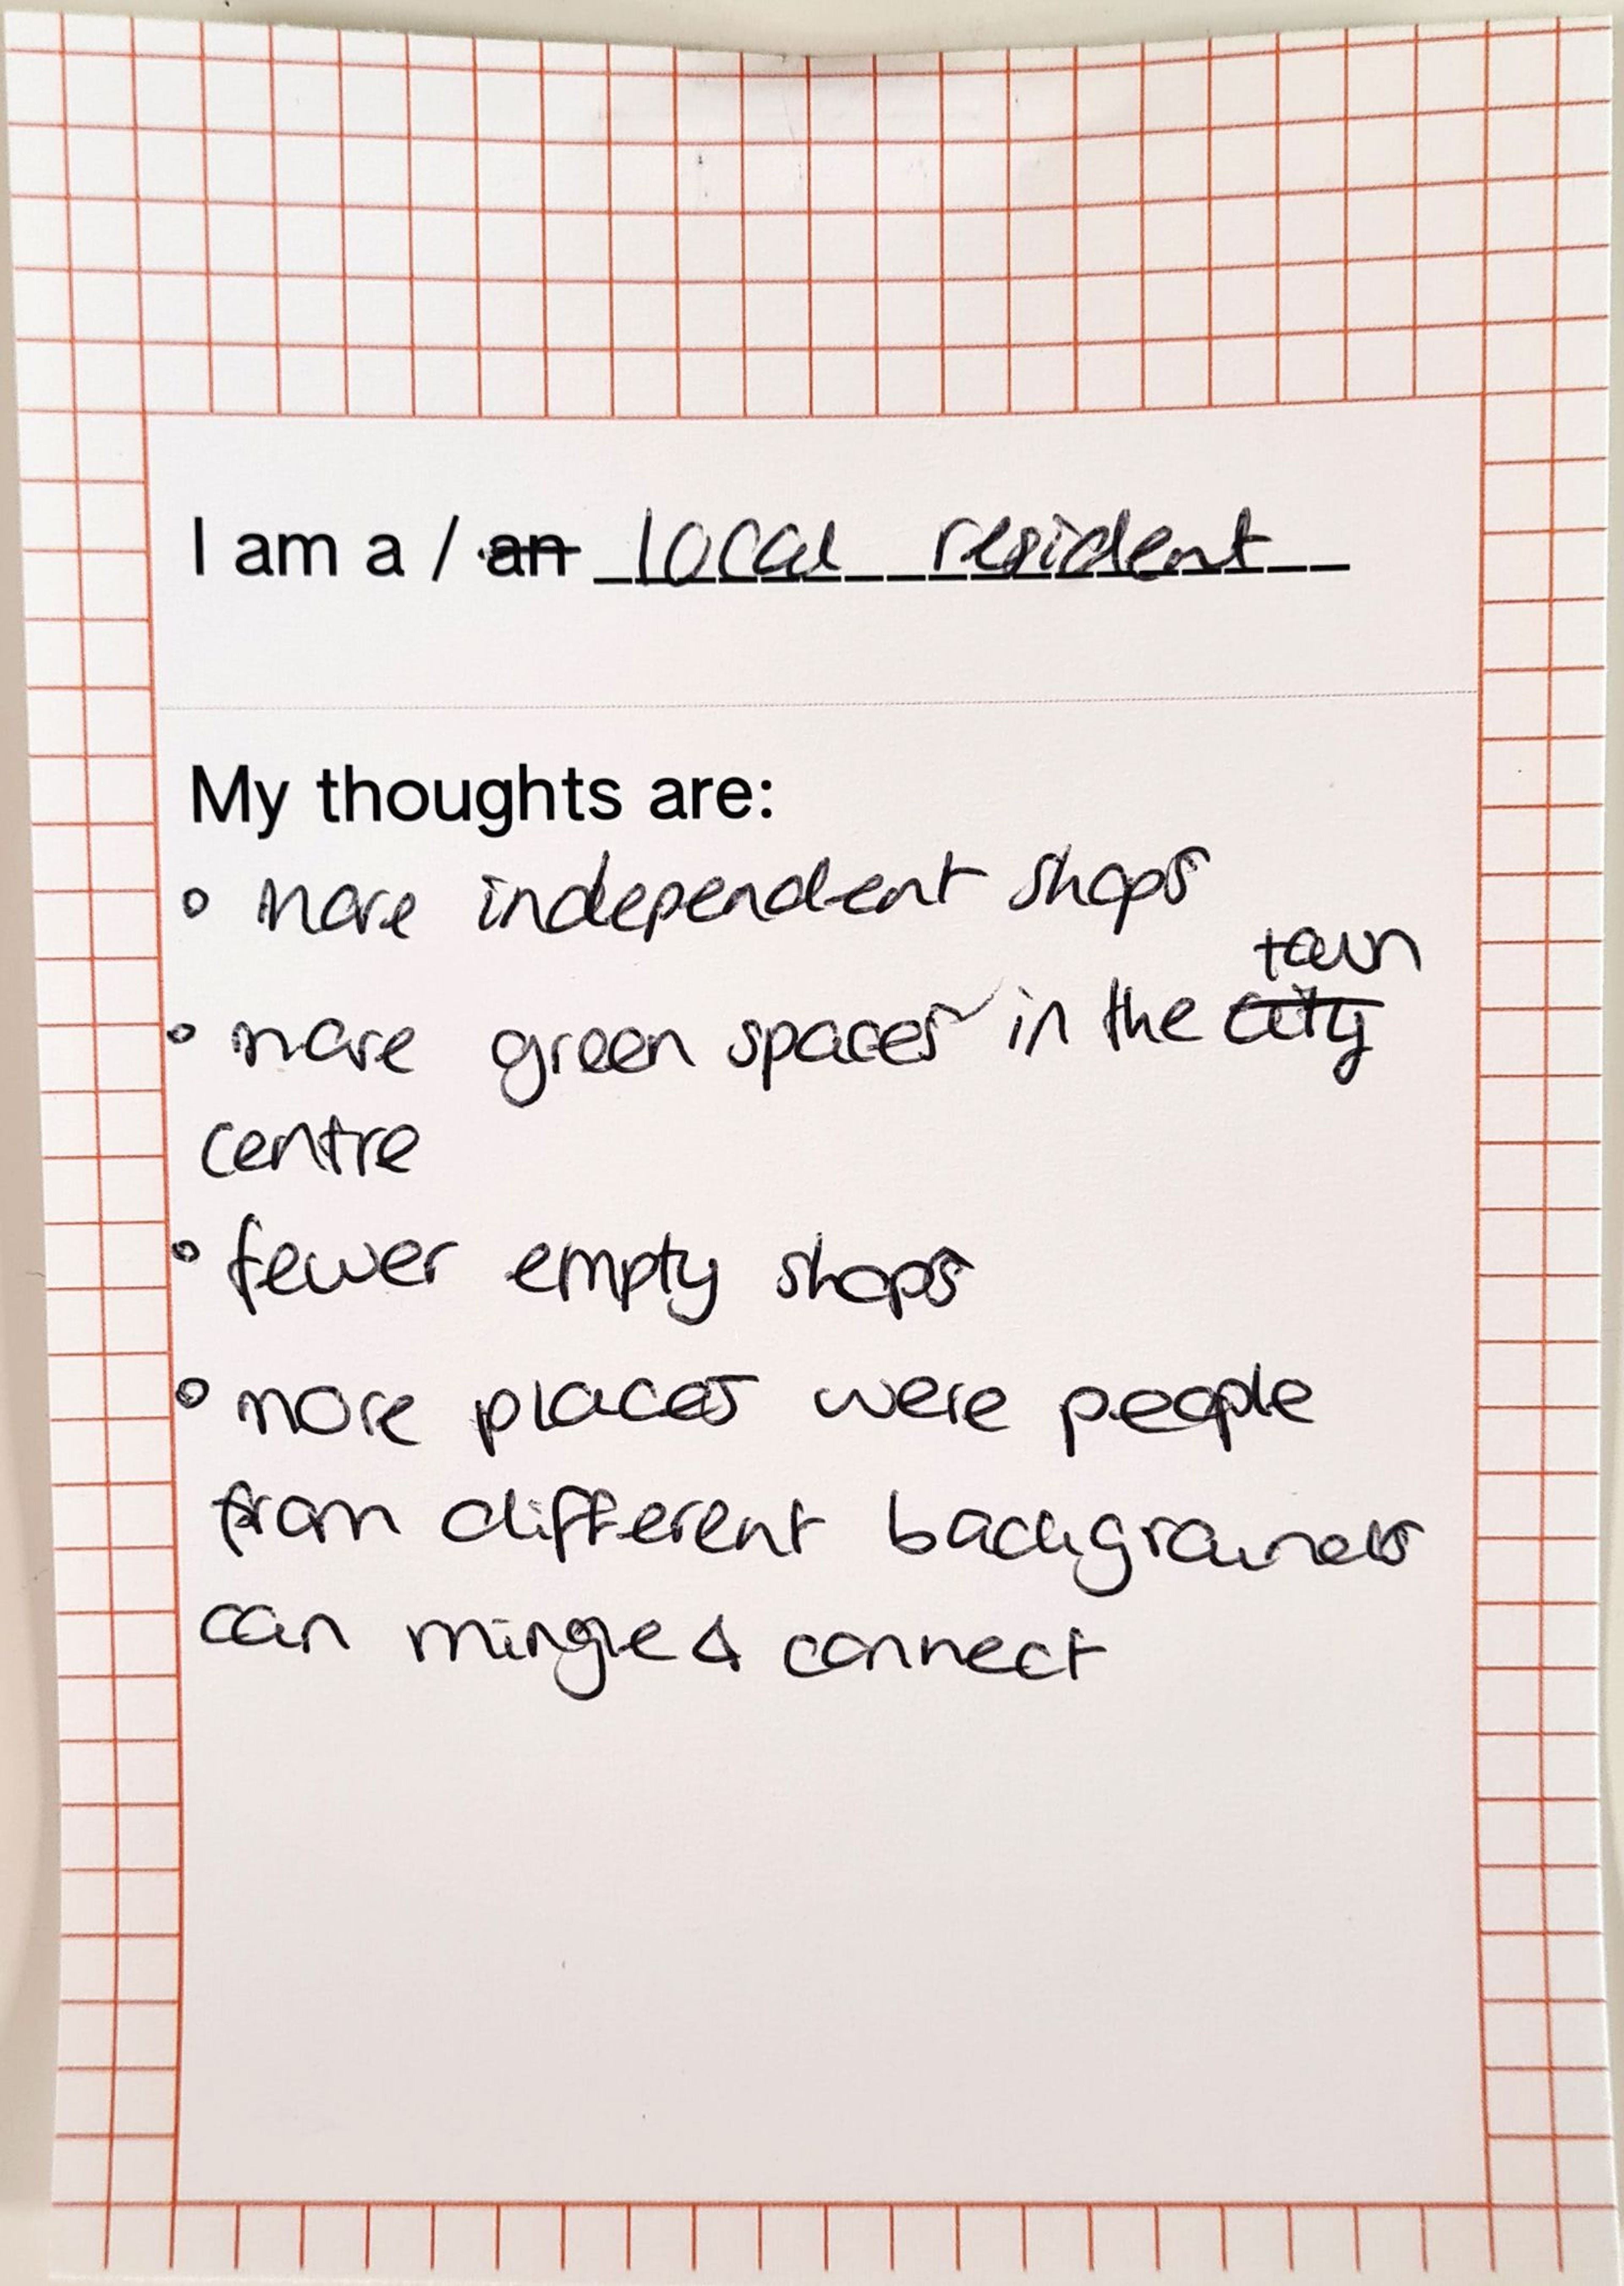 I am a / an local resident
My thoughts are:
• more independent shops
town
• more green spaces in the city
centre
• fewer empty shops
• more places were people
from different backgrounds
can mingle & connect